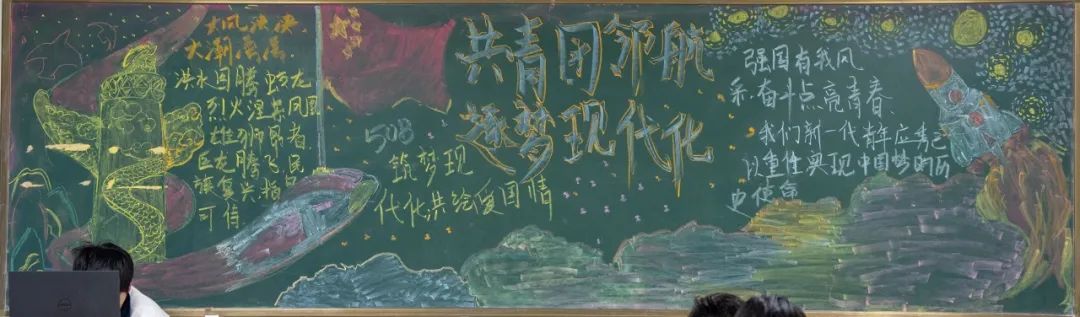 大风泱泱
大潮
洪水图腾蛟龙
烈火涅槃凤凰
雄狮昂
巨龙腾飞民
族复兴指
可待
508
筑梦现
代化洪绘爱国情
共青团领航
逐梦现代化
强国有我风
采奋斗点亮青春
我们新一代青年应
以重实现中国梦的历
史使命